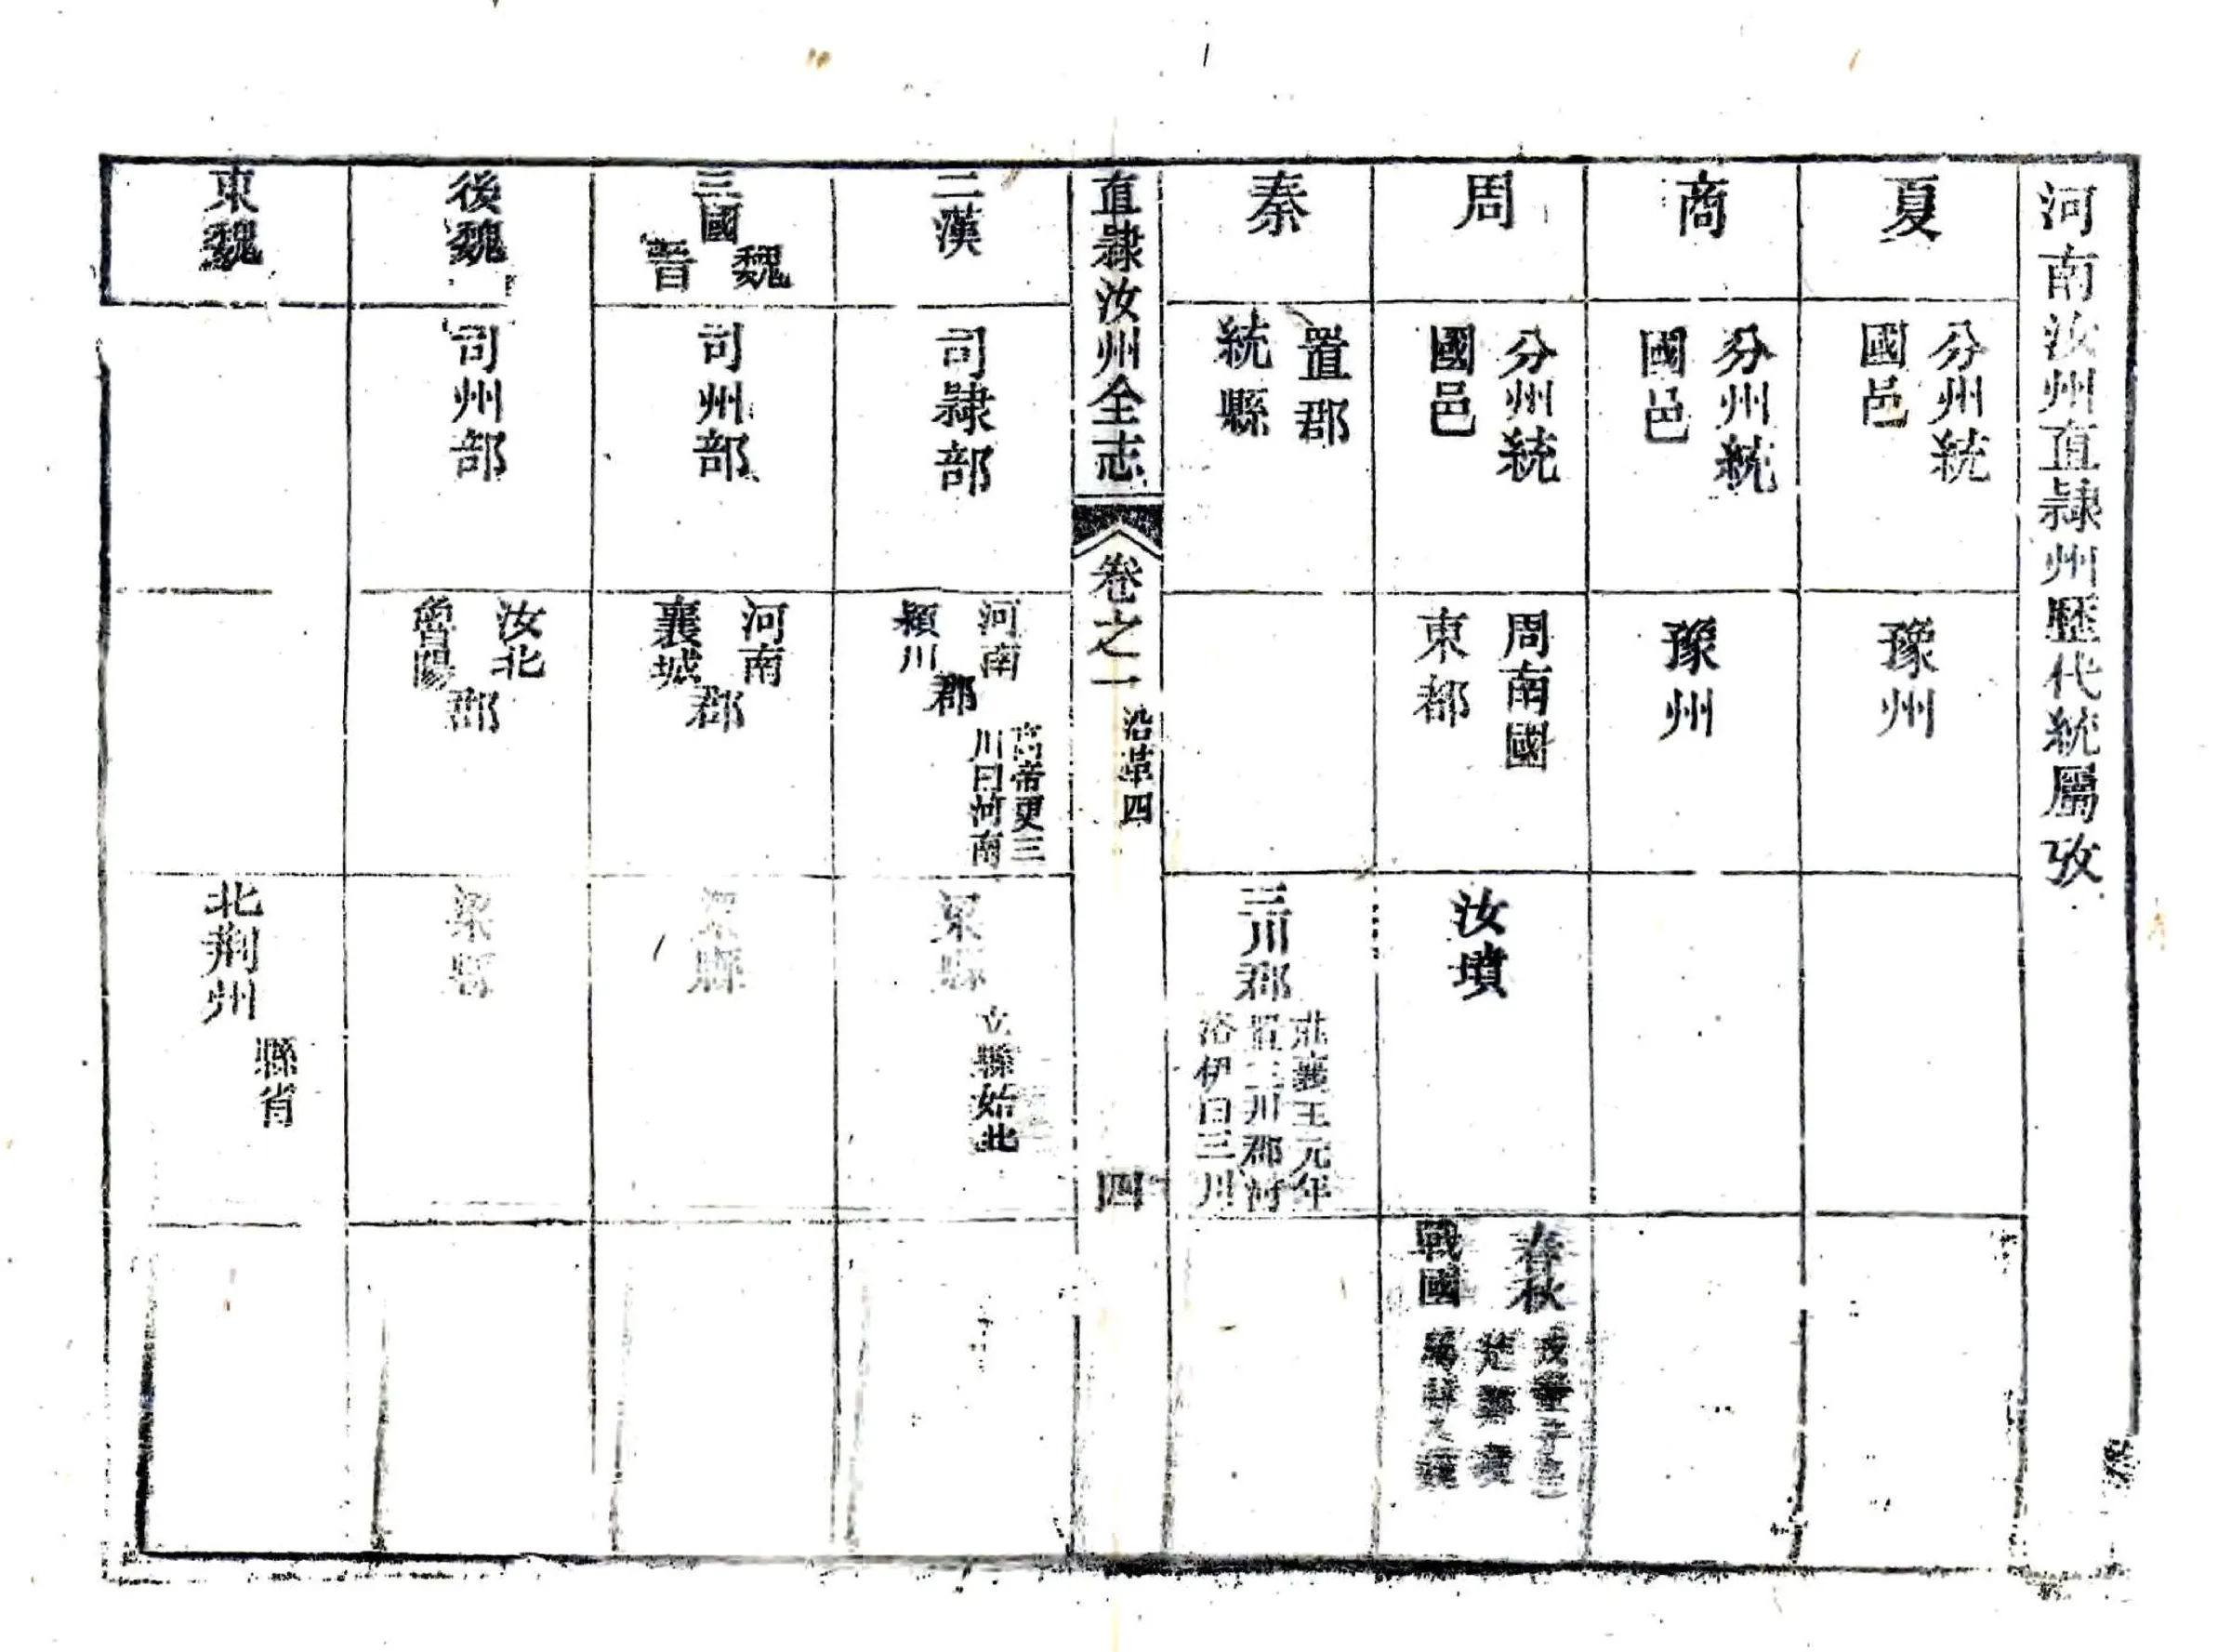 河南汝州直隸州歷代統屬攷
夏
分州統
國邑
豫州
商
分州統
國邑
豫州
周
分州統
國邑
周南國
東都
汝墳
春秋
戰國
秦
置郡
統縣
三川郡
莊襄王元年
置三川郡河
洛伊曰三川
直隸汝州全志
卷之一
沿革四
四
二漢
司隸部
河南
潁川
郡
高帝更三
川曰河南
梁縣
立縣始此
三國
魏
晉
司州部
河南
襄城
郡
梁縣
後魏
司州部
汝北
魯陽
郡
梁縣
東魏
北荆州
縣省